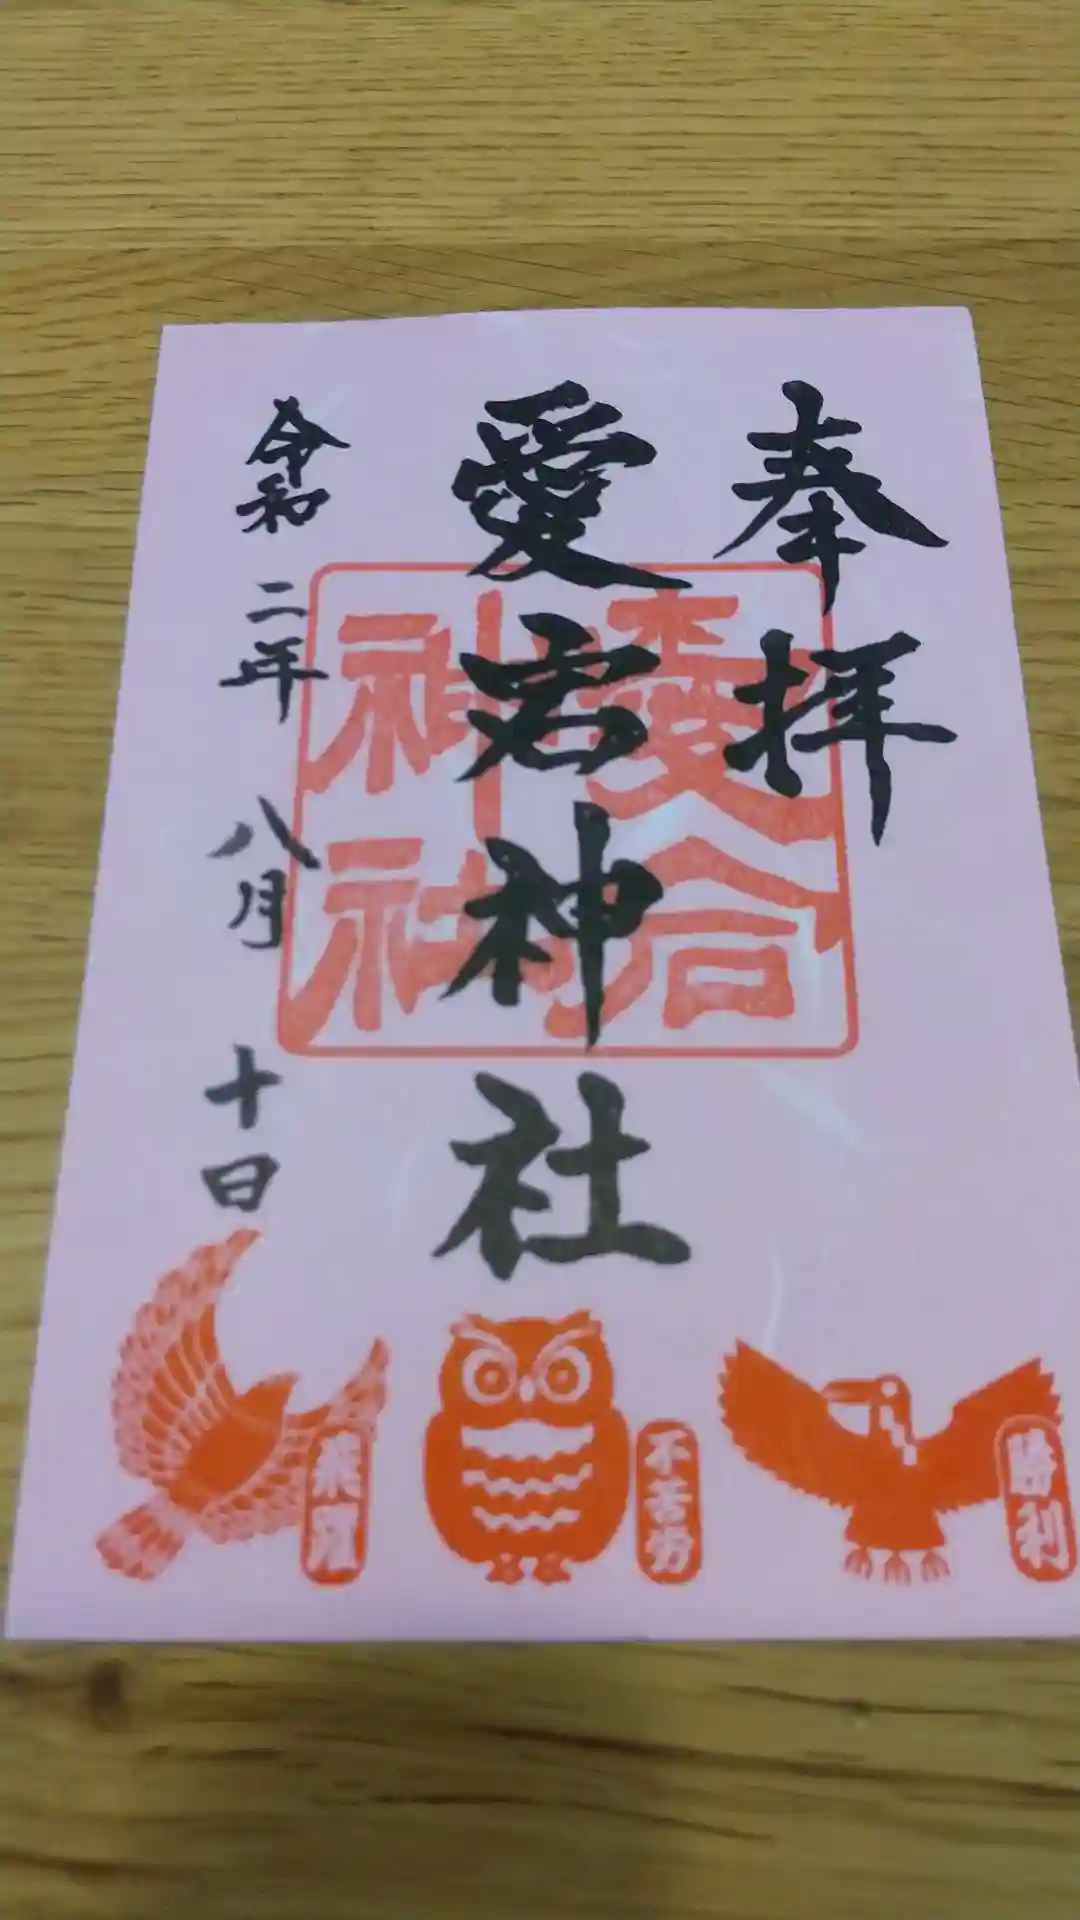 奉拝
愛宕神社
愛宕
神社
令和二年八月十日
勝利
不苦労
飛躍